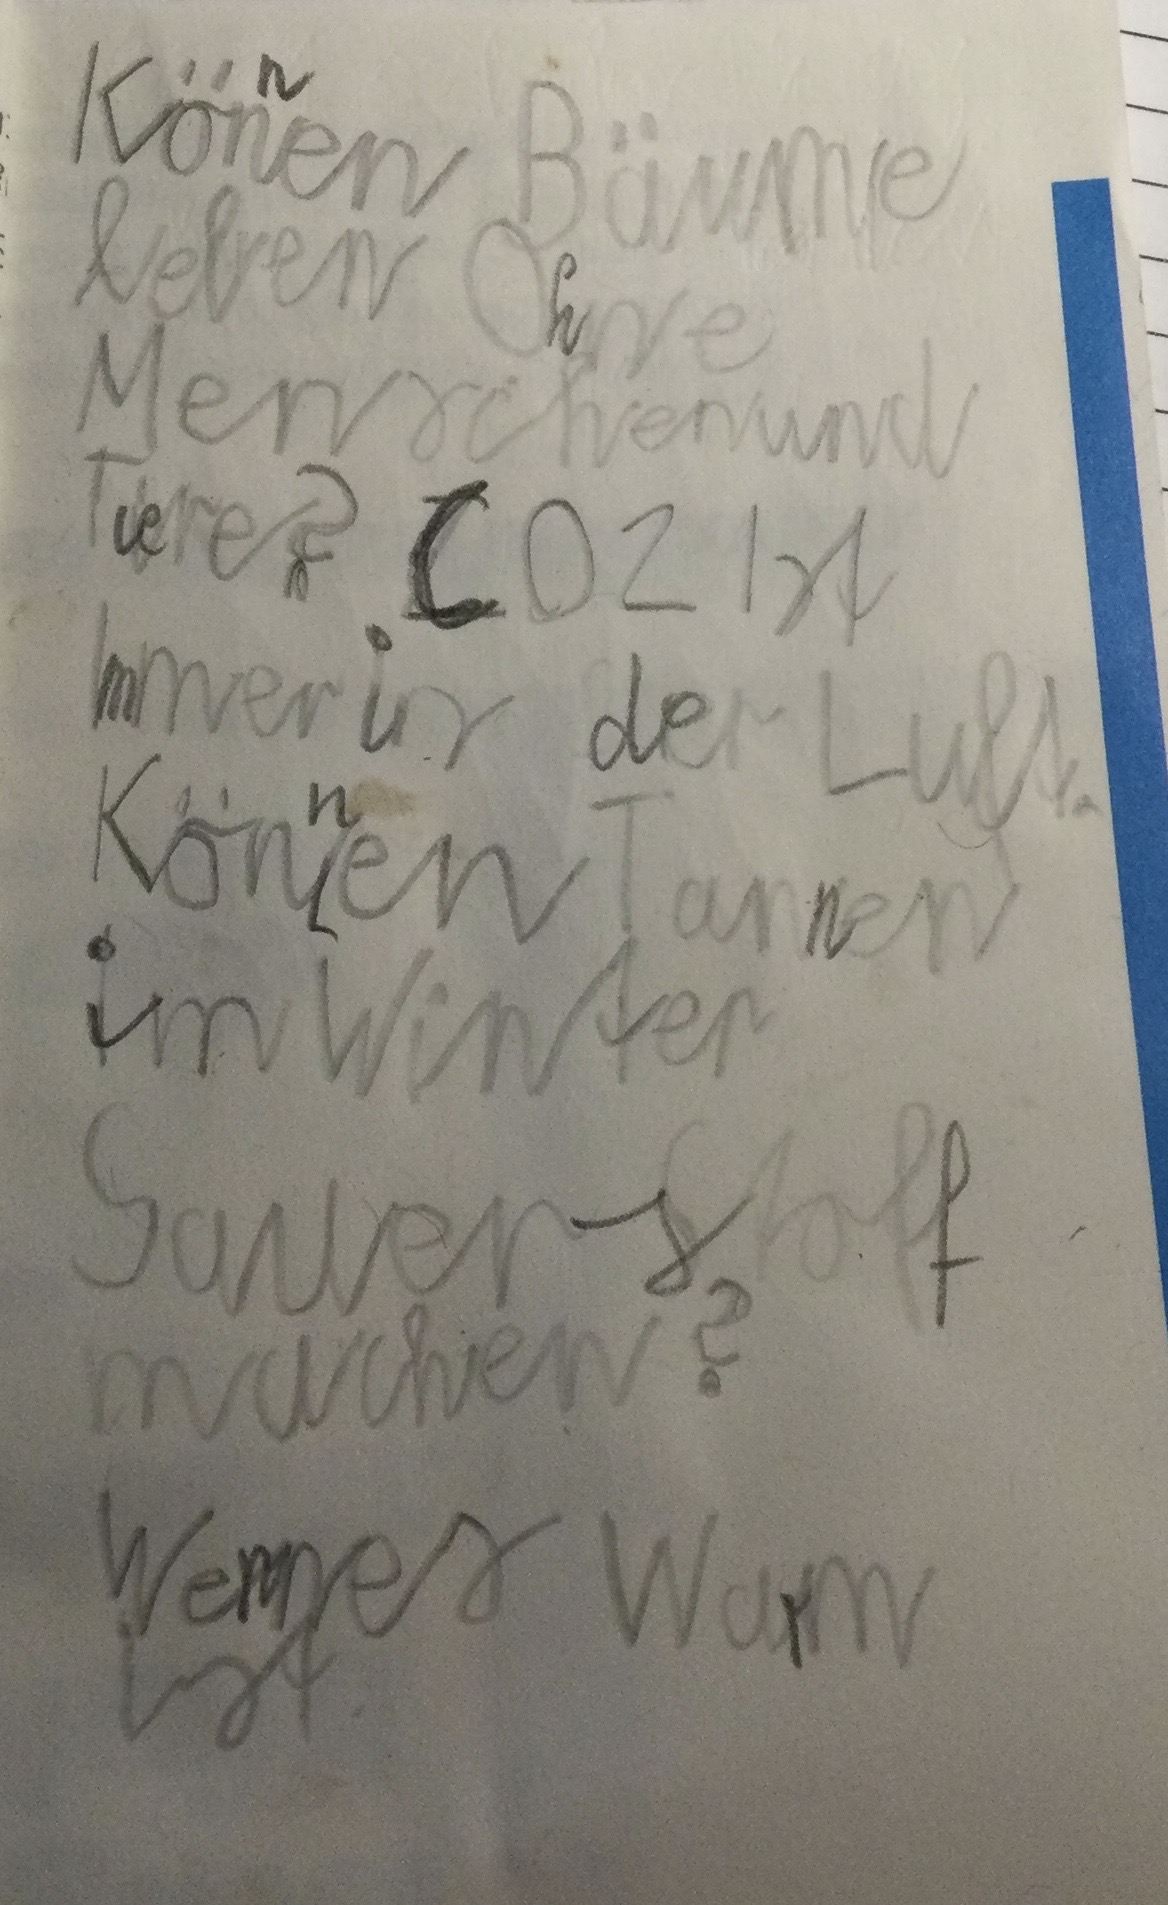 Können Bäume
leben Ohne
Menschen und
Tiere? CO2 Ist
Immer in der Luft.
Können Tannen
im Winter
Sauerstoff
machen?
Wenn es Warm
ist.